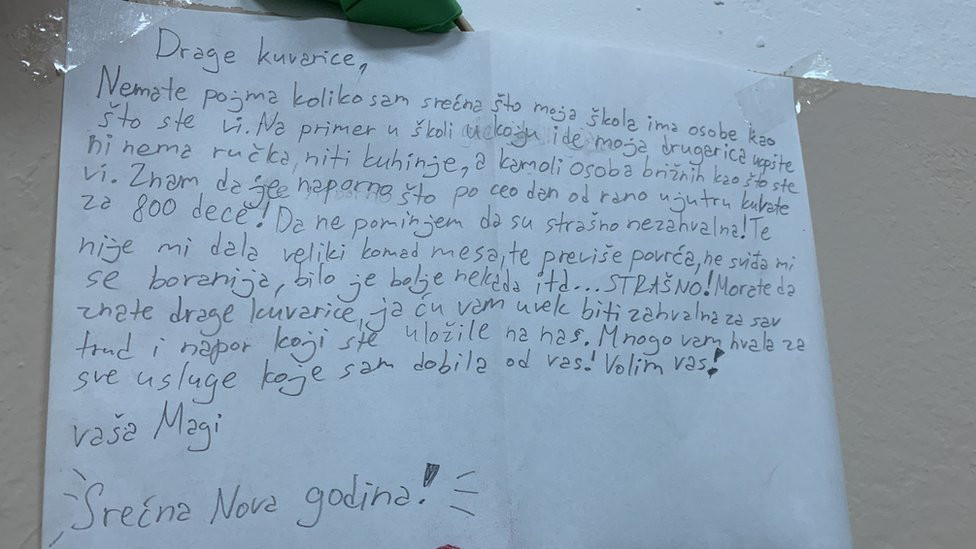 Drage kuvarice,
Nemate pojma koliko sam srećna što moja škola ima osobe kao
što ste vi. Na primer u školi u koju ide moja drugarica uopšte
ni nema ručka, niti kuhinje, a kamoli osoba brižnih kao što ste
vi. Znam da je naporno što po ceo dan od rano ujutru kuvate
za 800 dece! Da ne pominjem da su strašno nezahvalna! Te
nije mi dala veliki komad mesa, te previše povrća, ne sviđa mi
se boranija, bilo je bolje nekada itd... STRAŠNO! Morate da
znate drage kuvarice, ja ću vam uvek biti zahvalna za sav
trud i napor koji ste uložile na nas. Mnogo vam hvala za
sve usluge koje sam dobila od vas! Volim vas!
vaša Magi
Srećna Nova godina!